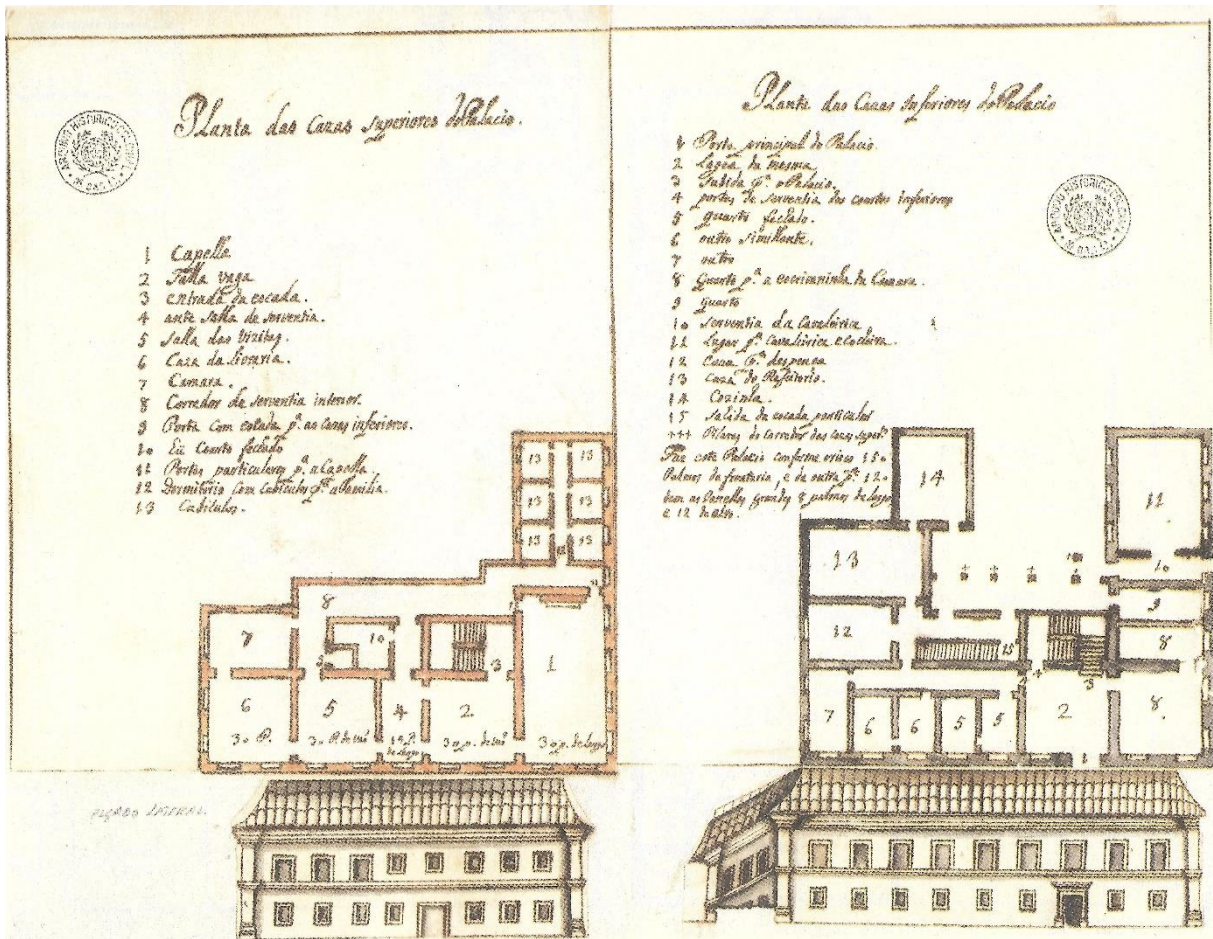 Planta das Cazas superiores do Palacio.
1 Capella
2 Salla vaga
3 entrada da escada.
4 ante salla da serventia.
5 salla das Vizitas.
6 Caza da livraria.
7 Camara.
8 Corredor da serventia interior.
9 Porta com escada pª. as cazas inferiores.
10 Coarto fechado
11 Portas particulares pª. a Capella.
12 Dormitorio com cubiculos pª. a familia.
13 Cubiculos.
ARQUIVO HISTORICO COLONIAL
13 13
13 13
13 13
8
7 10 3 1
6 5 4 2
30 P. 30 P. de 30 p. de 30 p. de largo
Planta das Cazas Inferiores do Palacio
1 Porta principal do Palacio.
2 Logea da mesma
3 Subida pª. o Palacio.
4 portas de serventia dos coartos inferiores
5 quarto fechado.
6 outro similhante.
7 outro
8 Quarto pª. a escrivaninha da Camara.
9 quarto
10 serventia da Cavalarica
11 Lugar pª. Cavalarica e cocheira.
12 Caza pª. despença
13 caza do Refeitorio.
14 Cozinha.
15 salida da escada particular
+++ Pilares do corredor das cazas super.
Faz este Palacio conforme o risco 150
Palmos de frontaria, e da outra pª. 120
tem as Janellas grandes 8 palmos de largo
e 12 de alto.
ARQUIVO HISTORICO COLONIAL
14 11
13 + + + + 10
9
12 15 8
3
7 6 6 5 5 2 8
1
ALÇADO LATERAL.